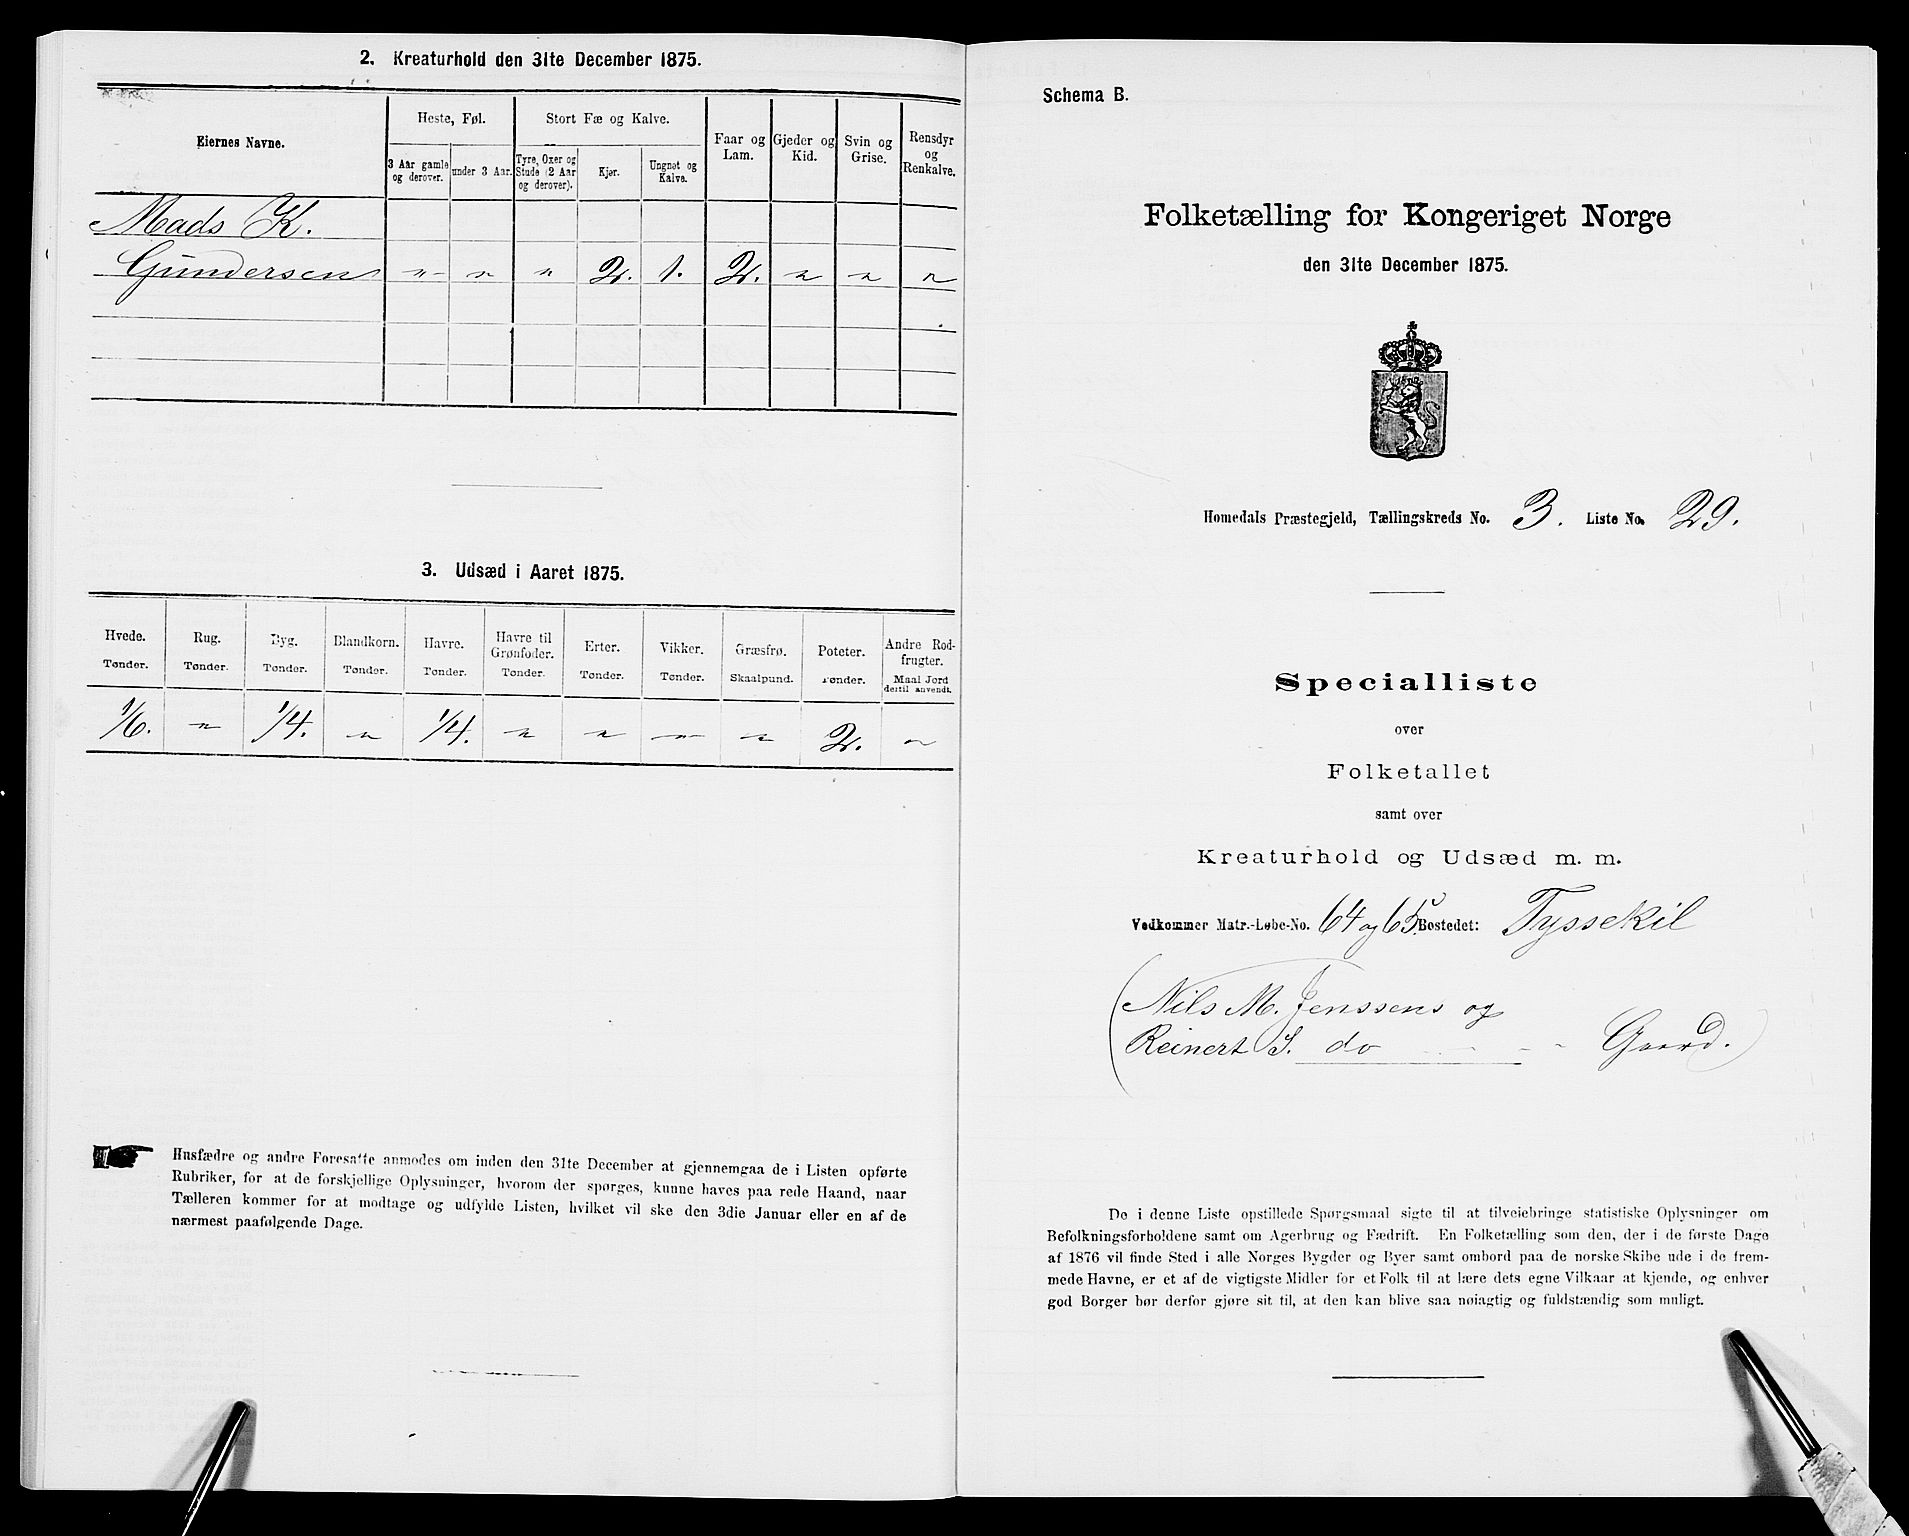 2. Kreaturhold den 31te December 1875.
Eiernes Navne.
Heste, Føl.
3 Aar gamle og derover.
under 3 Aar.
Stort Fæ og Kalve.
Tyre, Oxer og Stude (2 Aar og derover).
Kjør.
Ungnøt og Kalve.
Faar og Lam.
Gjeder og Kid.
Svin og Grise.
Rensdyr og Renkalve.
Mads K.
Gundersen " " " 2. 1. 2. " " "
3. Udsæd i Aaret 1875.
Hvede. Rug. Byg. Blandkorn. Havre. Havre til Grønfoder. Erter. Vikker. Græsfrø. Poteter. Andre Rodfrugter.
Tønder. Tønder. Tønder. Tønder. Tønder. Tønder. Tønder. Tønder. Skaalpund. Tønder. Maal Jord dertil anvendt.
1/6. " 1/4. " 1/4. " " " " 2. "
Husfædre og andre Foresatte anmodes om inden den 31te December at gjennemgaa de i Listen opførte
Rubriker, for at de forskjellige Oplysninger, hvorom der spørges, kunne haves paa rede Haand, naar
Tælleren kommer for at modtage og udfylde Listen, hvilket vil ske den 3die Januar eller en af de
nærmest paafølgende Dage.
Schema B.
Folketælling for Kongeriget Norge
den 31te December 1875.
Homedals Præstegjeld, Tællingskreds No. 3. Liste No. 29.
Specialliste
over
Folketallet
samt over
Kreaturhold og Udsæd m. m.
Vedkommer Matr.-Løbe-No. 64 og 65. Bostedet: Tyssekil
(Nils M. Jenssens og
Reinert S. do - - - Gaard.)
De i denne Liste opstillede Spørgsmaal sigte til at tilveiebringe statistiske Oplysninger om
Befolkningsforholdene samt om Agerbrug og Fædrift. En Folketælling som den, der i de første Dage
af 1876 vil finde Sted i alle Norges Bygder og Byer samt ombord paa de norske Skibe ude i de frem-
mede Havne, er et af de vigtigste Midler for et Folk til at lære dets egne Vilkaar at kjende, og enhver
god Borger bør derfor gjøre sit til, at den kan blive saa nøiagtig og fuldstændig som muligt.